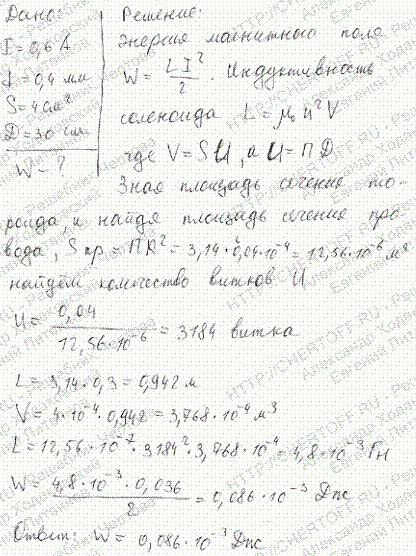 Дано:
I = 0,6 А
l = 0,4 мм
S = 4 см²
D = 30 см
W - ?
Решение:
Энергия магнитного поля
W = L I² / 2 . Индуктивность
соленоида L = μ₀ n² V
где V = S l, а l = П D
Зная площадь сечения то-
роида, и найдя площадь сечения про-
вода, S пр = П R² = 3,14 · 0,04·10⁻⁴ = 12,56·10⁻⁶ м²
найдём количество витков n
n = 0,04 / 12,56·10⁻⁶ = 3184 витка
L = 3,14 · 0,3 = 0,942 м
V = 4·10⁻⁴ · 0,942 = 3,768·10⁻⁴ м³
L = 12,56·10⁻⁷ · 3184² · 3,768·10⁻⁴ = 4,8·10⁻³ Гн
W = 4,8·10⁻³ · 0,036 / 2 = 0,086·10⁻³ Дж
Ответ: W = 0,086·10⁻³ Дж